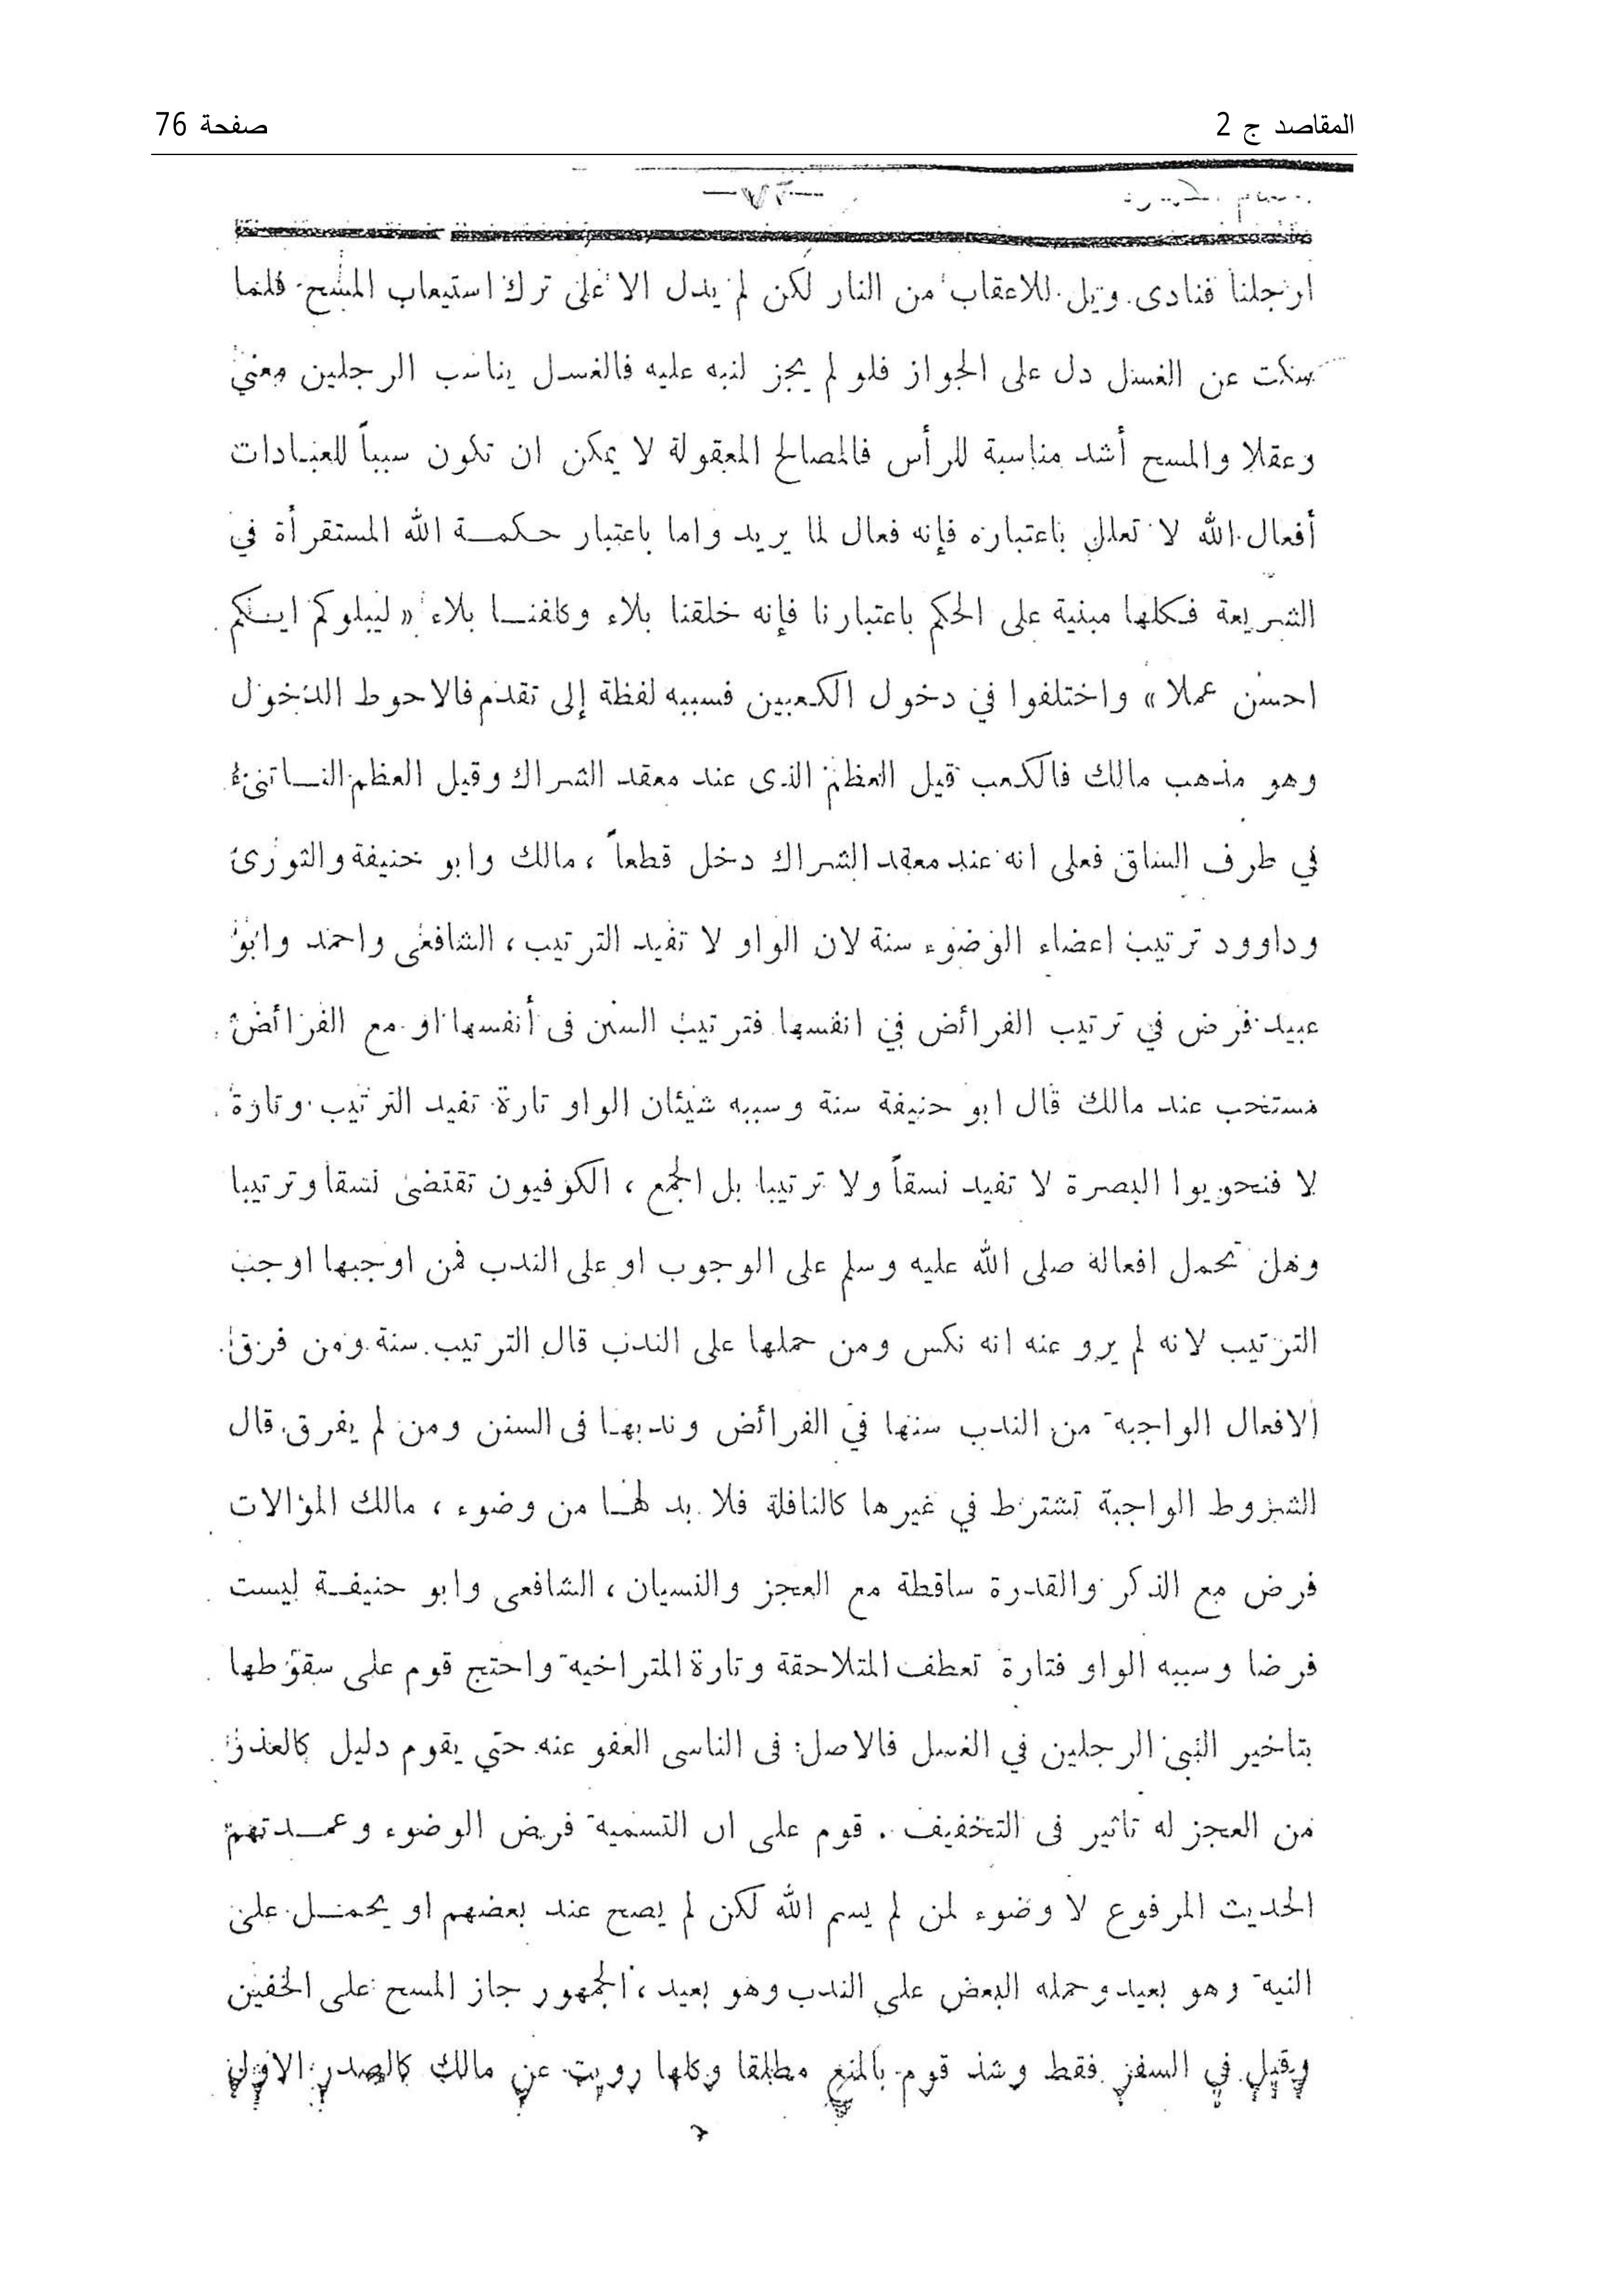 المقاصد ج 2
صفحة 76
ارجلنا فنادى ويل للاعقاب من النار لكن لم يدل الا على ترك استيعاب المسح فلما
سكت عن الغسل دل على الجواز فلو لم يجز لنبه عليه فالغسل يناسب الرجلين معنى
وعقلا والمسح أشد مناسبة للرأس فالمصالح المعقولة لا يمكن ان تكون سبباً للعبادات
أفعال الله لا تعلل باعتباره فإنه فعال لما يريد واما باعتبار حكمة الله المستقرأة في
الشريعة فكلها مبنية على الحكم باعتبارنا فإنه خلقنا بلاء وكلفنا بلاء « ليبلوكم ايكم
احسن عملا » واختلفوا في دخول الكعبين فسببه لفظة إلى تقدم فالاحوط الدخول
وهو مذهب مالك فالكعب قيل العظم الذى عند معقد الشراك وقيل العظم الناتىء
في طرف الساق فعلى انه عند معقد الشراك دخل قطعاً ، مالك وابو حنيفة والثورى
وداوود ترتيب اعضاء الوضوء سنة لان الواو لا تفيد الترتيب ، الشافعى واحمد وابو
عبيد فرض في ترتيب الفرائض في انفسها فترتيب السنن فى أنفسها او مع الفرائض
مستحب عند مالك قال ابو حنيفة سنة وسببه شيئان الواو تارة تفيد الترتيب وتارة
لا فنحويوا البصرة لا تفيد نسقاً ولا ترتيبا بل الجمع ، الكوفيون تقتضى نسقا وترتيبا
وهل تحمل افعاله صلى الله عليه وسلم على الوجوب او على الندب فمن اوجبها اوجب
الترتيب لانه لم يرو عنه انه نكس ومن حملها على الندب قال الترتيب سنة ومن فرق
الافعال الواجبة من الندب سنها في الفرائض وندبها فى السنن ومن لم يفرق قال
الشروط الواجبة تشترط في غيرها كالنافلة فلا بد لها من وضوء ، مالك المؤالات
فرض مع الذكر والقدرة ساقطة مع العجز والنسيان ، الشافعى وابو حنيفة ليست
فرضا وسببه الواو فتارة تعطف المتلاحقة وتارة المتراخية واحتج قوم على سقوطها
بتاخير النبى الرجلين في الغسل فالاصل فى الناسى العفو عنه حتي يقوم دليل كالعذر
من العجز له تاثير فى التخفيف . قوم على ان التسمية فرض الوضوء وعمدتهم
الحديث المرفوع لا وضوء لمن لم يسم الله لكن لم يصح عند بعضهم او يحمل على
النية وهو بعيد وحمله البعض على الندب وهو بعيد ، الجمهور جاز المسح على الخفين
وقيل في السفر فقط وشذ قوم بالمنع مطلقا وكلها رويت عن مالك كالصدر الاول